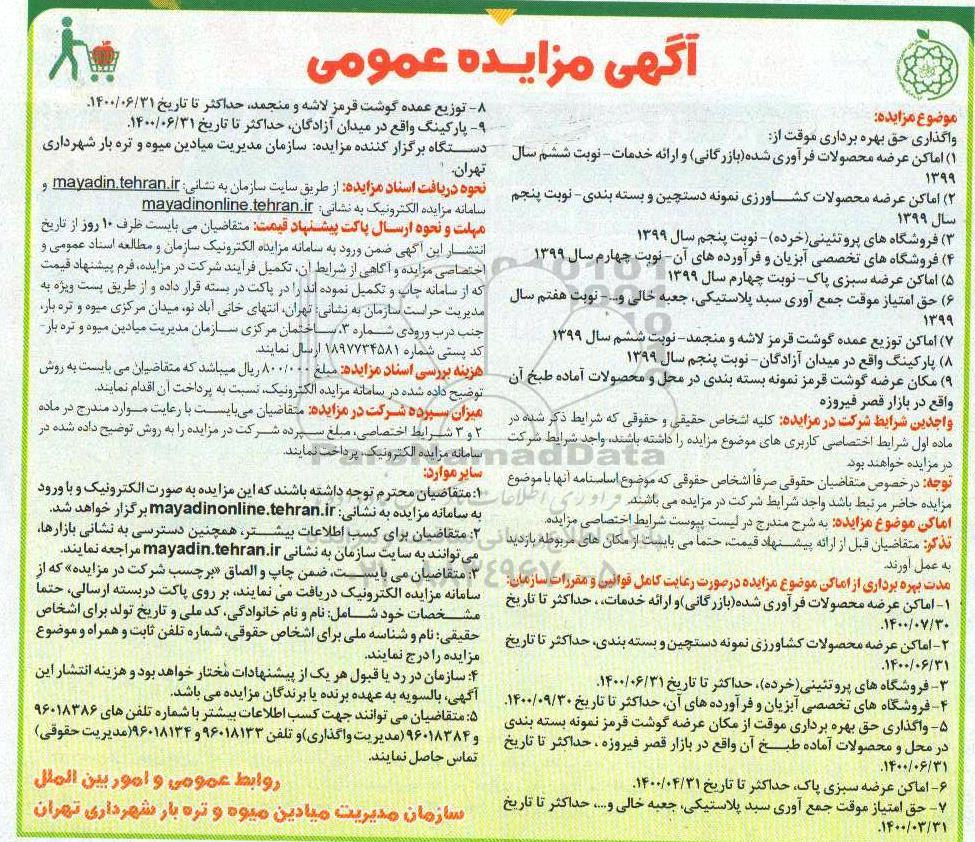 آگهی مزایده عمومی
موضوع مزایده:
واگذاری حق بهره برداری موقت از:
۱) اماکن عرضه محصولات فرآوری شده(بازرگانی) و ارائه خدمات- نوبت ششم سال
۱۳۹۹
۲) اماکن عرضه محصولات کشاورزی نمونه دستچین و بسته بندی- نوبت پنجم
سال ۱۳۹۹
۳) فروشگاه های پروتئینی(خرده)- نوبت پنجم سال ۱۳۹۹
۴) فروشگاه های تخصصی آبزیان و فرآورده های آن- نوبت چهارم سال ۱۳۹۹
۵) اماکن عرضه سبزی پاک- نوبت چهارم سال ۱۳۹۹
۶) حق امتیاز موقت جمع آوری سبد پلاستیکی، جعبه خالی و...- نوبت هفتم سال
۱۳۹۹
۷) اماکن توزیع عمده گوشت قرمز لاشه و منجمد- نوبت ششم سال ۱۳۹۹
۸) پارکینگ واقع در میدان آزادگان- نوبت پنجم سال ۱۳۹۹
۹) مکان عرضه گوشت قرمز نمونه بسته بندی در محل و محصولات آماده طبخ آن
واقع در بازار قصر فیروزه
واجدین شرایط شرکت در مزایده: کلیه اشخاص حقیقی و حقوقی که شرایط ذکر شده در
ماده اول شرایط اختصاصی کاربری های موضوع مزایده را داشته باشند، واجد شرایط شرکت
در مزایده خواهند بود.
توجه: درخصوص متقاضیان حقوقی صرفاً اشخاص حقوقی که موضوع اساسنامه آنها با موضوع
مزایده حاضر مرتبط باشد واجد شرایط شرکت در مزایده می باشند.
اماکن موضوع مزایده: به شرح مندرج در لیست پیوست شرایط اختصاصی مزایده.
تذکر: متقاضیان قبل از ارائه پیشنهاد قیمت، حتماً می بایست از مکان های مربوطه بازدید
به عمل آورند.
مدت بهره برداری از اماکن موضوع مزایده درصورت رعایت کامل قوانین و مقررات سازمان:
۱- اماکن عرضه محصولات فرآوری شده(بازرگانی)و ارائه خدمات، ، حداکثر تا تاریخ
۱۴۰۰/۰۷/۳۰.
۲-اماکن عرضه محصولات کشاورزی نمونه دستچین و بسته بندی، حداکثر تا تاریخ
۱۴۰۰/۰۶/۳۱.
۳- فروشگاه های پروتئینی(خرده)، حداکثر تا تاریخ ۱۴۰۰/۰۶/۳۱.
۴-فروشگاه های تخصصی آبزیان و فرآورده های آن، حداکثر تا تاریخ ۱۴۰۰/۰۹/۳۰.
۵- واگذاری حق بهره برداری موقت از مکان عرضه گوشت قرمز نمونه بسته بندی
در محل و محصولات آماده طبخ آن واقع در بازار قصر فیروزه ، حداکثر تا تاریخ
۱۴۰۰/۰۶/۳۱.
۶- اماکن عرضه سبزی پاک، حداکثر تا تاریخ ۱۴۰۰/۰۴/۳۱.
۷- حق امتیاز موقت جمع آوری سبد پلاستیکی، جعبه خالی و...، حداکثر تا تاریخ
۱۴۰۰/۰۳/۳۱.
۸- توزیع عمده گوشت قرمز لاشه و منجمد، حداکثر تا تاریخ ۱۴۰۰/۰۶/۳۱.
۹- پارکینگ واقع در میدان آزادگان، حداکثر تا تاریخ ۱۴۰۰/۰۶/۳۱.
دستگاه برگزار کننده مزایده: سازمان مدیریت میادین میوه و تره بار شهرداری
تهران.
نحوه دریافت اسناد مزایده: از طریق سایت سازمان به نشانی: mayadin.tehran.ir و
سامانه مزایده الکترونیک به نشانی: mayadinonline.tehran.ir
مهلت و نحوه ارسال پاکت پیشنهاد قیمت: متقاضیان می بایست ظرف ۱۰ روز از تاریخ
انتشار این آگهی ضمن ورود به سامانه مزایده الکترونیک سازمان و مطالعه اسناد عمومی و
اختصاصی مزایده و آگاهی از شرایط آن، تکمیل فرآیند شرکت در مزایده، فرم پیشنهاد قیمت
که از سامانه چاپ و تکمیل نموده اند را در پاکت در بسته قرار داده و از طریق پست ویژه به
مدیریت حراست سازمان به نشانی: تهران، انتهای خانی آباد نو، میدان مرکزی میوه و تره بار،
جنب درب ورودی شماره ۳، ساختمان مرکزی سازمان مدیریت میادین میوه و تره بار-
کد پستی شماره ۱۸۹۷۷۳۴۵۸۱ ارسال نمایند.
هزینه بررسی اسناد مزایده: مبلغ ۸۰۰/۰۰۰ ریال میباشد که متقاضیان می بایست به روش
توضیح داده شده در سامانه مزایده الکترونیک، نسبت به پرداخت آن اقدام نمایند.
میزان سپرده شرکت در مزایده: متقاضیان می‌بایست با رعایت موارد مندرج در ماده
۲ و ۳ شرایط اختصاصی، مبلغ سپرده شرکت در مزایده را به روش توضیح داده شده در
سامانه مزایده الکترونیک، پرداخت نمایند.
سایر موارد:
۱: متقاضیان محترم توجه داشته باشند که این مزایده به صورت الکترونیک و با ورود
به سامانه مزایده به نشانی: mayadinonline.tehran.ir برگزار خواهد شد.
۲: متقاضیان برای کسب اطلاعات بیشتر، همچنین دسترسی به نشانی بازارها،
می توانند به سایت سازمان به نشانی mayadin.tehran.ir مراجعه نمایند.
۳: متقاضیان می بایست، ضمن چاپ و الصاق «برچسب شرکت در مزایده» که از
سامانه مزایده الکترونیک دریافت می نمایند، بر روی پاکت دربسته ارسالی، حتماً
مشخصات خود شامل: نام و نام خانوادگی، کد ملی و تاریخ تولد برای اشخاص
حقیقی: نام و شناسه ملی برای اشخاص حقوقی، شماره تلفن ثابت و همراه و موضوع
مزایده را درج نمایند.
۴: سازمان در رد یا قبول هر یک از پیشنهادات مختار خواهد بود و هزینه انتشار این
آگهی، بالسویه به عهده برنده یا برندگان مزایده می باشد.
۵: متقاضیان می توانند جهت کسب اطلاعات بیشتر با شماره تلفن های ۹۶۰۱۸۳۸۶
و ۹۶۰۱۸۳۸۴(مدیریت واگذاری)و تلفن ۹۶۰۱۸۱۳۳ و ۹۶۰۱۸۱۳۴ (مدیریت حقوقی)
تماس حاصل نمایند.
روابط عمومی و امور بین الملل
سازمان مدیریت میادین میوه و تره بار شهرداری تهران
ParsNamadData